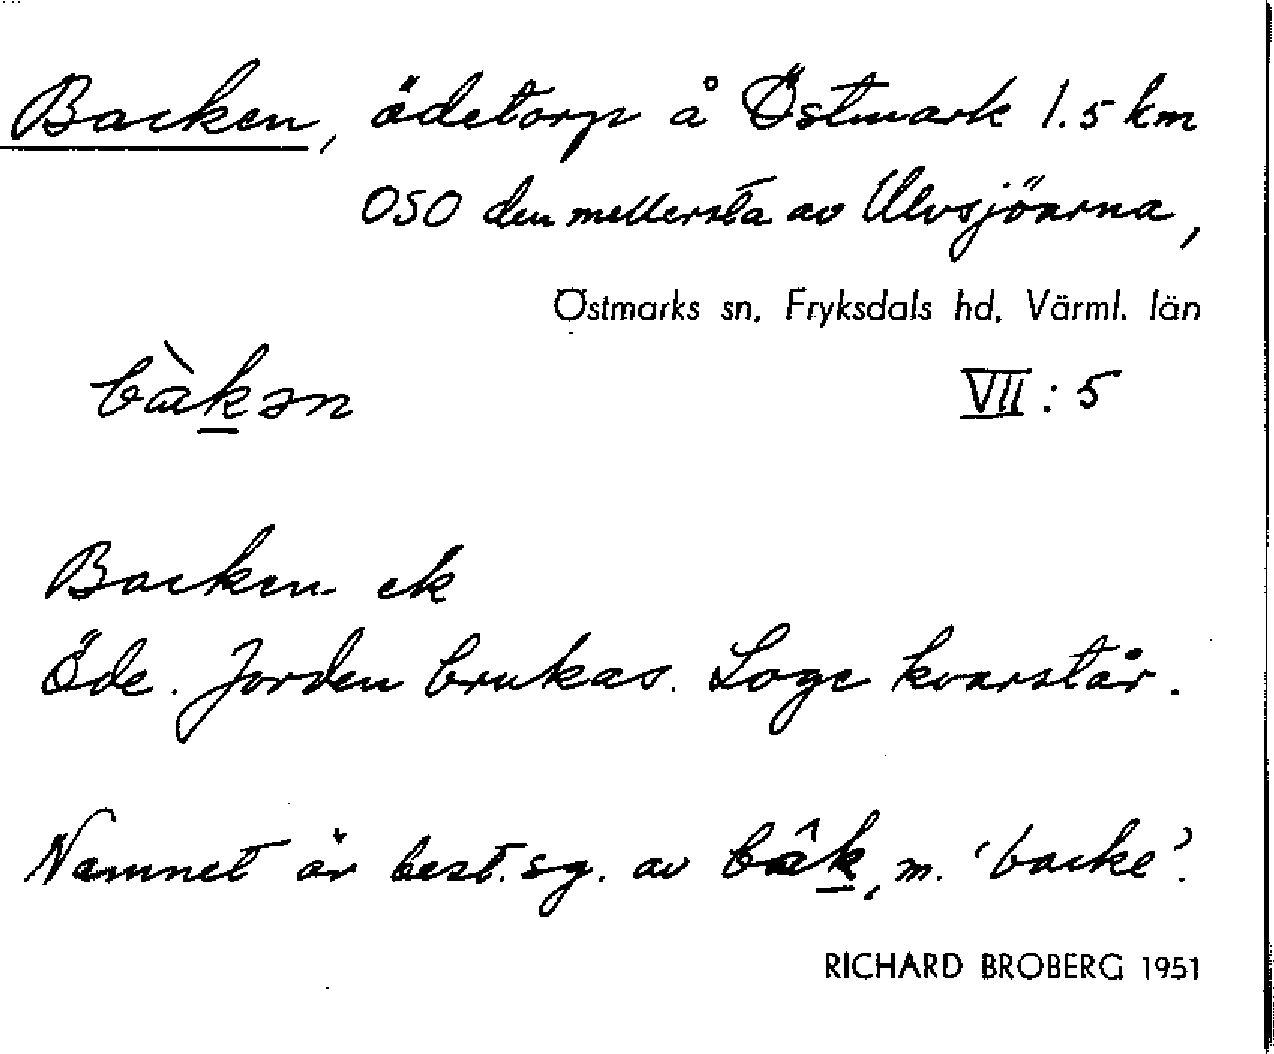 Backen, ödetorp å Östmark 1.5 km
OSO den mellersta av Ulvsjöarna,
Östmarks sn, Fryksdals hd, Värml. län
bàk̲ən
VII : 5
Backen ek
Öde. Jorden brukas. Loge kvarstår.
Namnet är best. sg. av bâk̲, m. 'backe'.
RICHARD BROBERG 1951